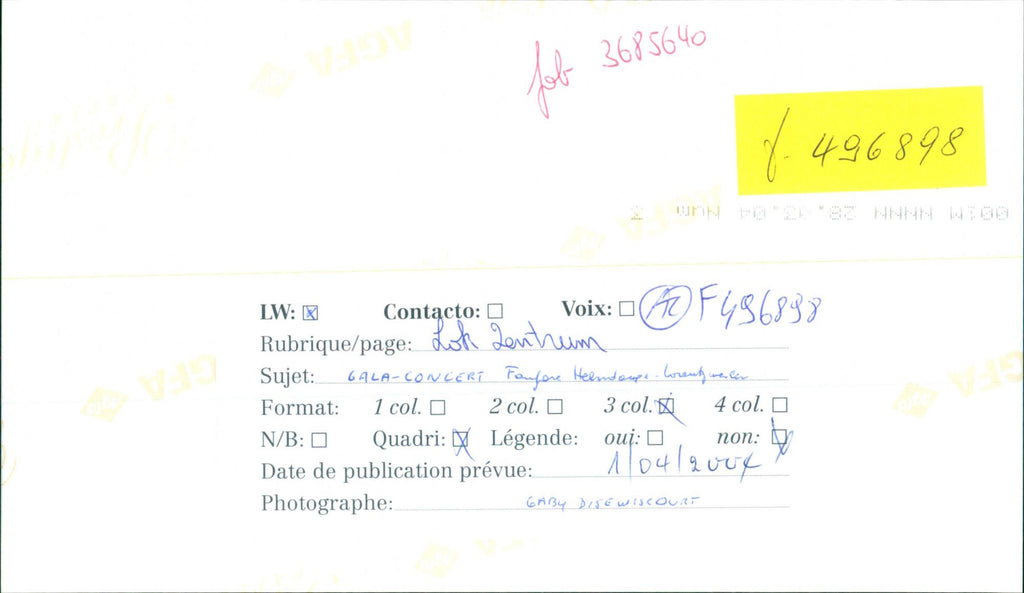 AGFA
Job 3685640
f. 496898
001M NNNN 28.03.04 NUM
LW: ☒ Contacto: ☐ Voix: ☐ F496898
Rubrique/page: Lok Zentrum
Sujet: GALA-CONCERT Fanfare Helmdange-Lorentzweiler
Format: 1 col. ☐ 2 col. ☐ 3 col. ☒ 4 col. ☐
N/B: ☐ Quadri: ☒ Légende: oui: ☐ non: ☒
Date de publication prévue: 1/04/2004
Photographe: GABY DISEWISCOURT